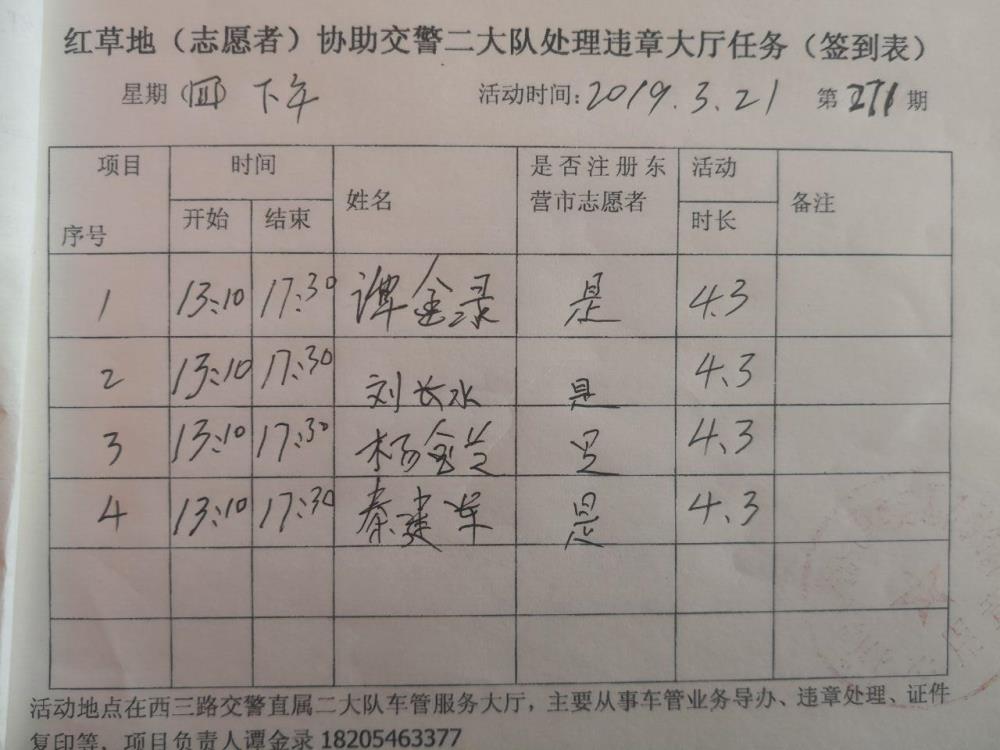 红草地（志愿者）协助交警二大队处理违章大厅任务（签到表）
星期（四）下午 活动时间：2019.3.21 第271期
项目 时间 姓名 是否注册东营市志愿者 活动时长 备注
序号 开始 结束
1 13:10 17:30 谭金录 是 4.3
2 13:10 17:30 刘长水 是 4.3
3 13:10 17:30 杨金兰 是 4.3
4 13:10 17:30 秦建军 是 4.3
活动地点在西三路交警直属二大队车管服务大厅，主要从事车管业务导办、违章处理、证件
复印等，项目负责人谭金录 18205463377